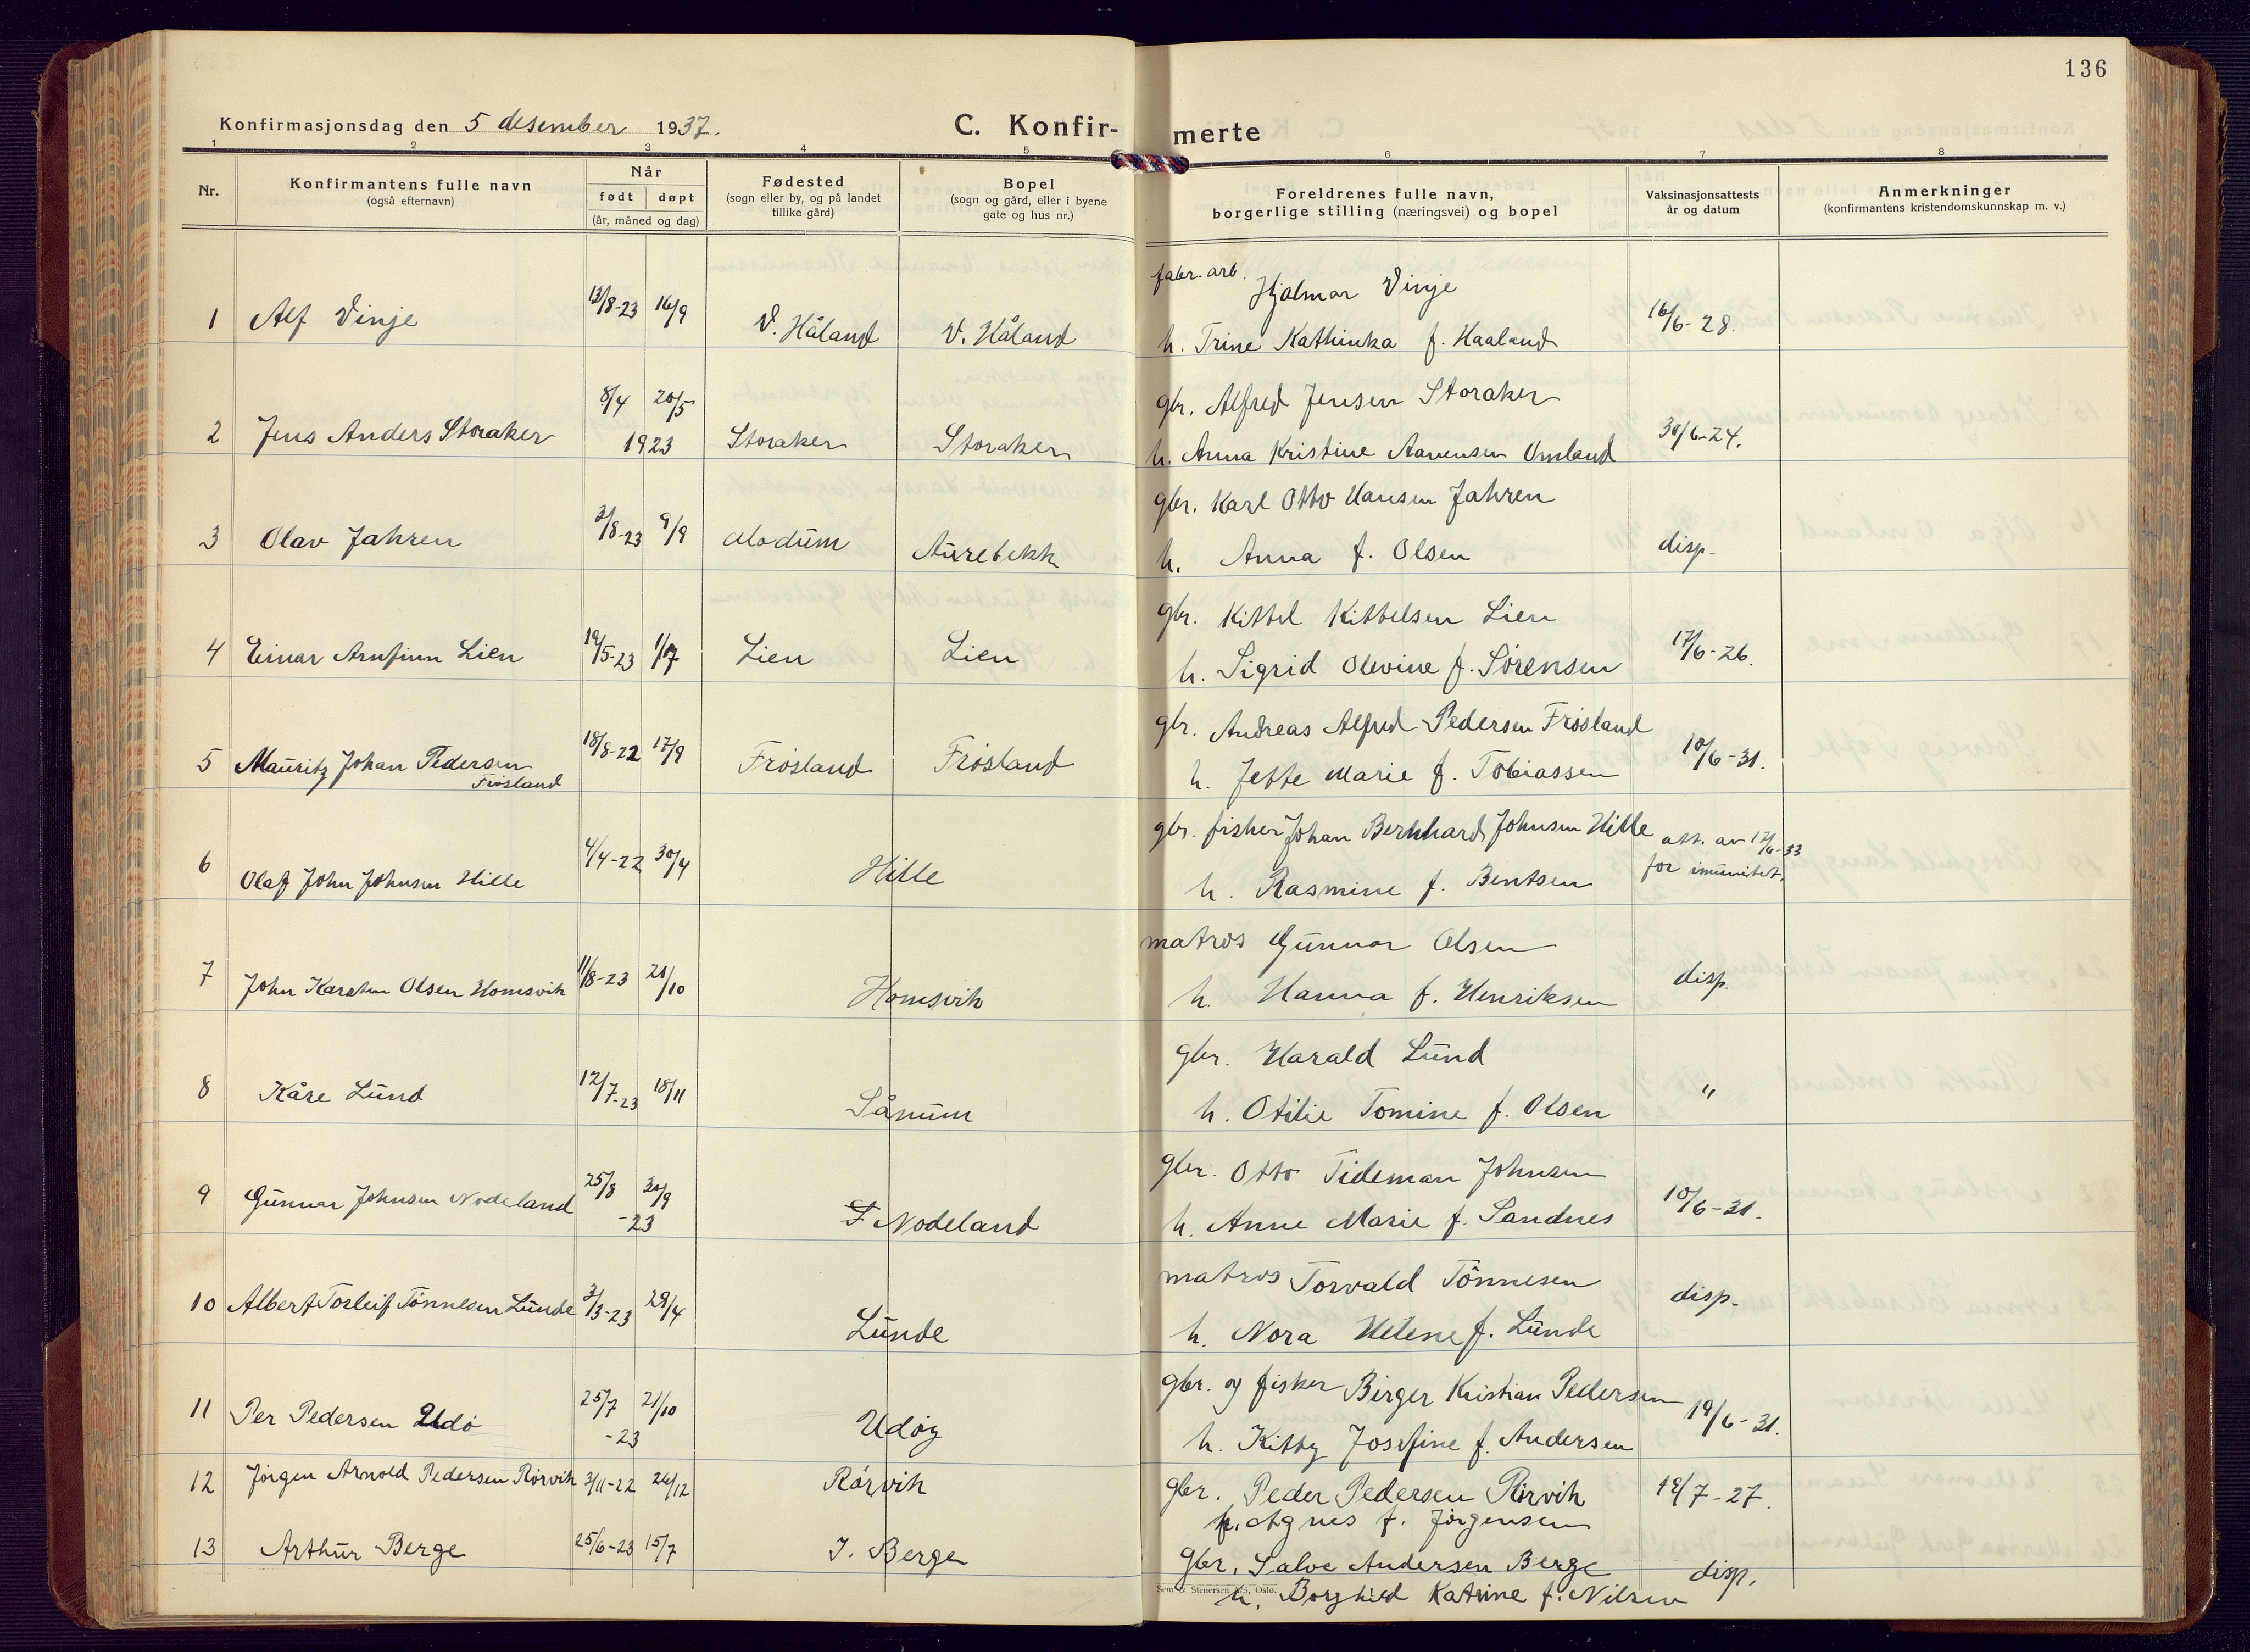 136
Konfirmasjonsdag den 5 desember 1937.
C. Konfir-
merte
1 2 3 4 5 6 7 8
Nr.
Konfirmantens fulle navn
(også efternavn)
Når
født døpt
(år, måned og dag)
Fødested
(sogn eller by, og på landet
tillike gård)
Bopel
(sogn og gård, eller i byene
gate og hus nr.)
Foreldrenes fulle navn,
borgerlige stilling (næringsvei) og bopel
Vaksinasjonsattests
år og datum
Anmerkninger
(konfirmantens kristendomskunnskap m. v.)
fabr. arb. Hjalmar Vinje
1 Alf Vinje 13/8-23 16/9 V. Håland V. Håland h. Trine Kathinka f. Haaland 16/6-28.
8/4 20/5 gbr. Alfred Jensen Storaker
2 Jens Anders Storaker 1923 Storaker Storaker h. Anna Kristine Aanensen Omland 30/6-24.
gbr. Karl Otto Hansen Jahren
3 Olav Jahren 3/8-23 9/9 Modum Aurebekk h. Anna f. Olsen disp.
gbr. Kittel Kittelsen Lien
4 Einar Arnfinn Lien 19/5-23 1/7 Lien Lien h. Sigrid Olevine f. Sørensen 17/6-26.
gbr. Andreas Alfred Pedersen Frøsland
5 Mauritz Johan Pedersen 18/8-22 17/9 Frøsland Frøsland h. Jette Marie f. Tobiassen 10/6-31.
Frøsland
gbr. fisker Johan Bernhard Johnsen Hille att. av 17/6-33
6 Olaf John Johnsen Hille 4/4-22 30/4 Hille h. Rasmine f. Bentsen for imunitet.
matros Gunnar Olsen
7 John Karsten Olsen Homsvik 11/8-23 21/10 Homsvik h. Hanna f. Henriksen disp.
gbr. Harald Lund
8 Kåre Lund 12/7-23 18/11 Sånum h. Otilie Tomine f. Olsen "
25/8 30/9 gbr. Otto Tideman Johnsen
9 Gunnar Johnsen Nodeland -23 Nodeland h. Anne Marie f. Sandnes 10/6-31.
matros Torvald Tønnesen
10 Albert Torleif Tønnesen Lunde 3/3-23 29/4 Lunde h. Nora Helene f. Lunde disp.
25/7 21/10 gbr. og fisker Birger Kristian Pedersen
11 Per Pedersen Udø -23 Udøy h. Kitty Josefine f. Andersen 19/6-31.
12 Jørgen Arnold Pedersen Rørvik 3/11-22 26/12 Rørvik gbr. Peder Pedersen Rørvik 19/7-27.
h. Agnes f. Jørgensen
13 Arthur Berge 25/6-23 15/7 I. Berge gbr. Salve Andersen Berge disp.
h. Borghild Katrine f. Nilsen
Sem & Stenersen A/S, Oslo.